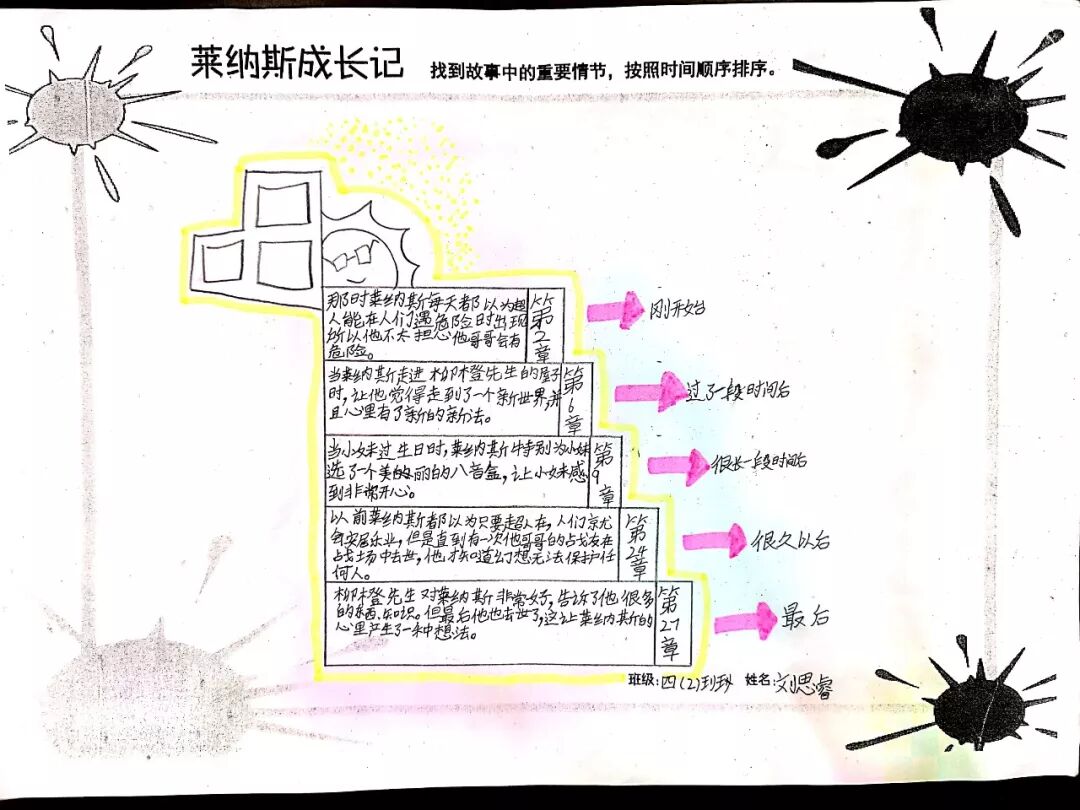 莱纳斯成长记 找到故事中的重要情节，按照时间顺序排序。
那时莱纳斯每天都以为超
人能在人们遇危险时出现
所以他不太担心他哥哥会有
危险。
第2章
刚开始
当莱纳斯走进柳橙先生的屋子
时，让他觉得走到了一个新世界，并
且心里有了新的新法。
第6章
过了一段时间后
当小妹过生日时，莱纳斯特别为小妹
选了一个美的丽的八音盒，让小妹感
到非常开心。
第9章
很长一段时间后
以前莱纳斯都以为只要超人在，人们就
会安居乐业，但是直到有一次他哥哥的战友在
战场中去世，他才知道幻想无法保护任
何人。
第24章
很久以后
柳橙先生对莱纳斯非常好，告诉了他很多
的东西、知识。但最后他也去世了，这让莱纳斯的
心里产生了一种想法。
第27章
最后
班级：四（2） 姓名：刘思睿